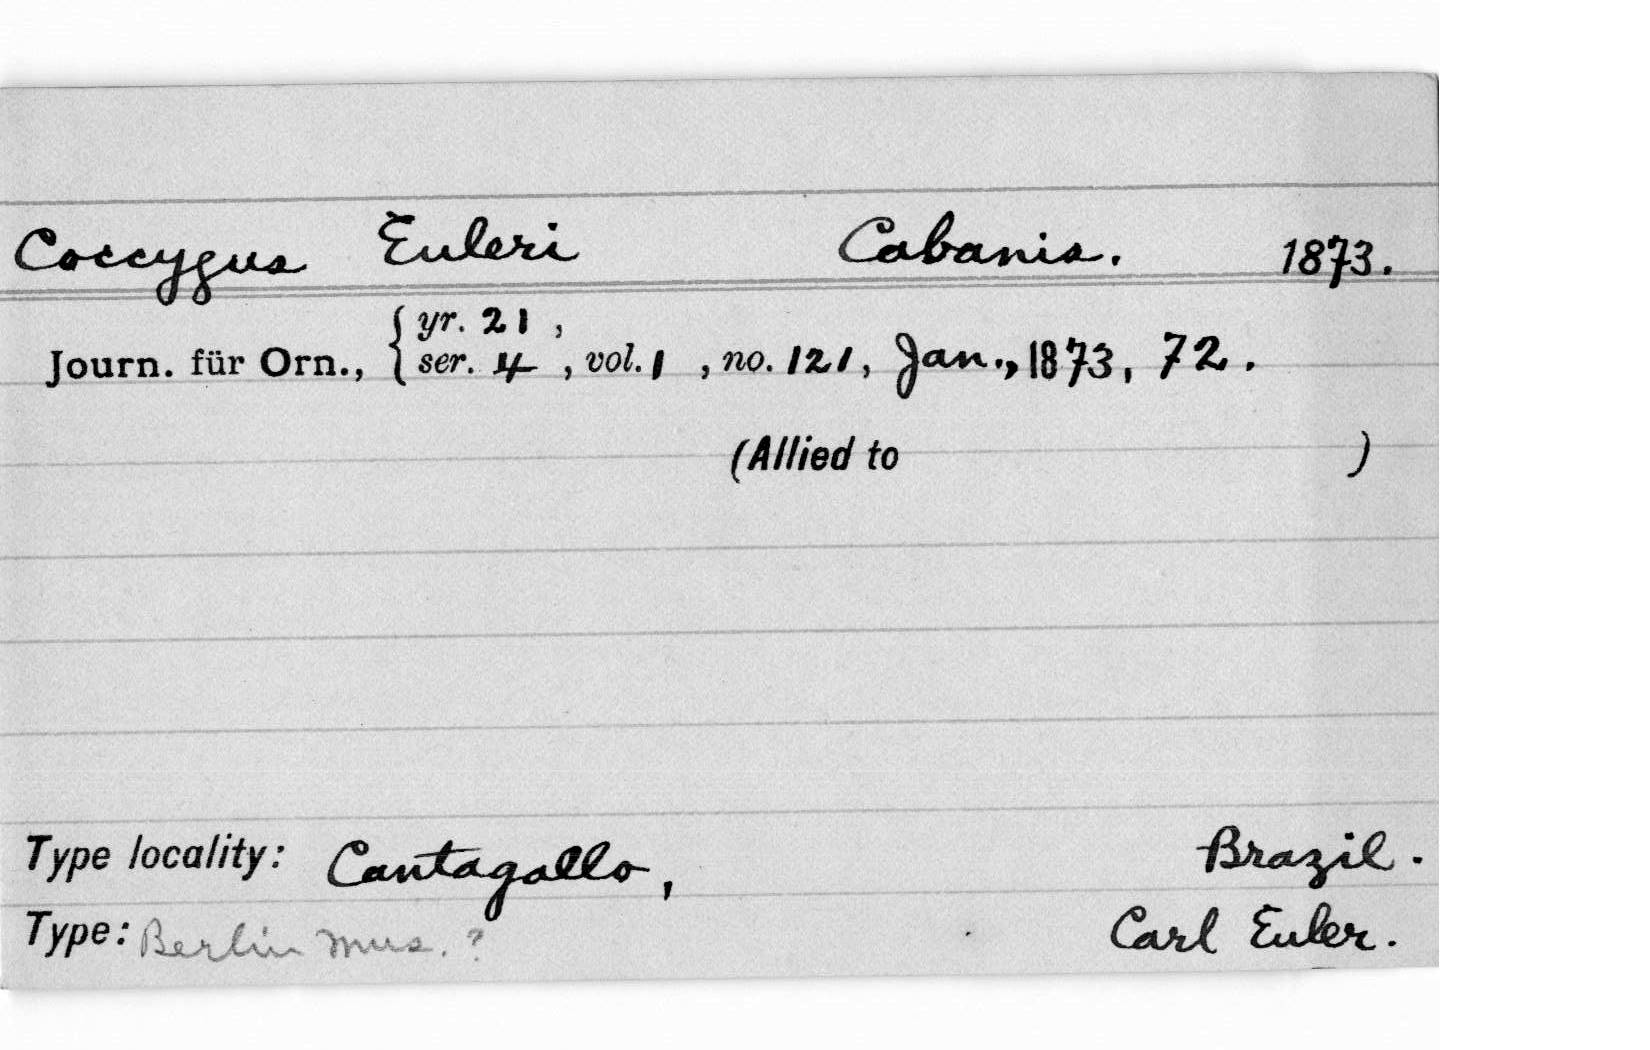 Coccygus Euleri Cabanis. 1873.
yr. 21,
Journ. für Orn., { ser. 4, vol. 1, no. 121, Jan., 1873, 72.
(Allied to )
Type locality: Cantagallo, Brazil.
Type: Berlin Mus. ? Carl Euler.